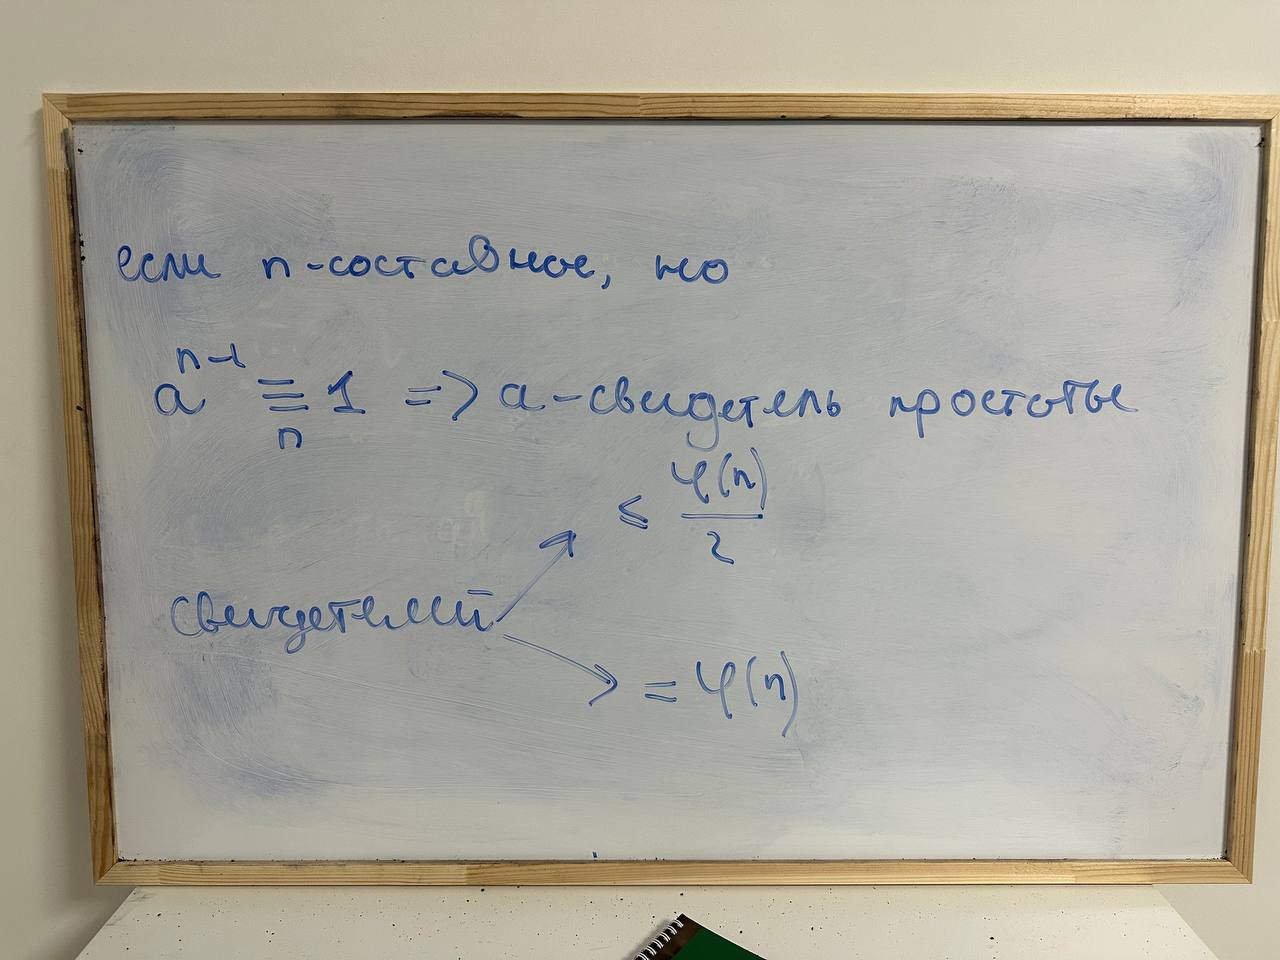 если n-составное, но
a^{n-1} ≡_n 1 => a-свидетель простоты
≤ φ(n)/2
свидетелей
= φ(n)